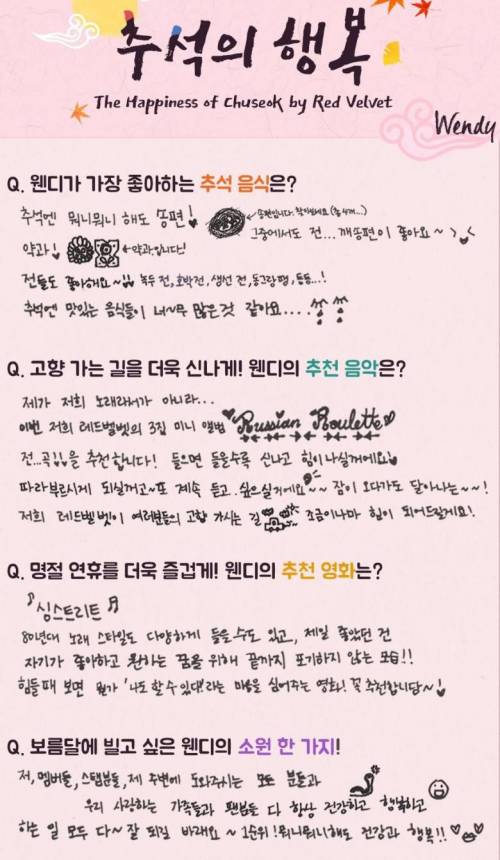 추석의 행복
The Happiness of Chuseok by Red Velvet
Wendy
Q. 웬디가 가장 좋아하는 추석 음식은?
추석엔 뭐니뭐니 해도 송편!
←송편입니다. 찾아보세요 (총 4개...)
그중에서도 전... 깨송편이 좋아요~
약과! ←약과입니다!
전들도 좋아해요~!! 녹두전, 호박전, 생선전, 동그랑땡, 등등...!
추석엔 맛있는 음식들이 너~무 많은것 같아요....
Q. 고향 가는 길을 더욱 신나게! 웬디의 추천 음악은?
제가 저희 노래라서가 아니라...
이번 저희 레드벨벳의 3집 미니 앨범 Russian Roulette
전..곡!!을 추천합니다! 들으면 들을수록 신나고 힘이나실꺼에요
따라부르시게 되실꺼고~또 계속 듣고..싶으실거에요~~ 잠이 오다가도 달아나는~~!
저희 레드벨벳이 여러분들의 고향 가시는 길 조금이나마 힘이 되어드릴게요!
Q. 명절 연휴를 더욱 즐겁게! 웬디의 추천 영화는?
♪싱스트리트♬
80년대 노래 스타일도 다양하게 들을수도 있고, 제일 좋았던 건
자기가 좋아하고 원하는 꿈을 위해 끝까지 포기하지 않는 모습!!
힘들때 보면 뭔가 '나도 할 수 있다!'라는 마음을 심어주는 영화! 꼭 추천합니담~!
Q. 보름달에 빌고 싶은 웬디의 소원 한 가지!
저, 멤버들, 스탭분들, 제 주변에 도와주시는 모든 분들과
우리 사랑하는 가족들과 팬분들 다 항상 건강하고 행복하고
하는 일 모두 다~ 잘 되길 바래요~ 1순위! 뭐니뭐니해도 건강과 행복!!